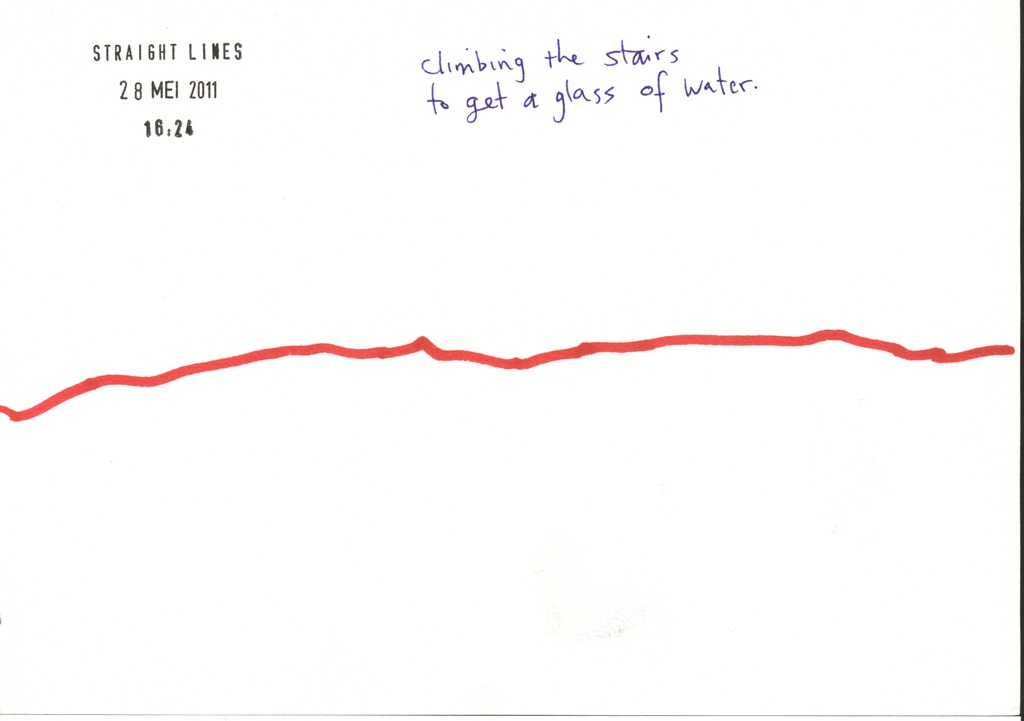 STRAIGHT LINES
28 MEI 2011
16.24
climbing the stairs
to get a glass of water.